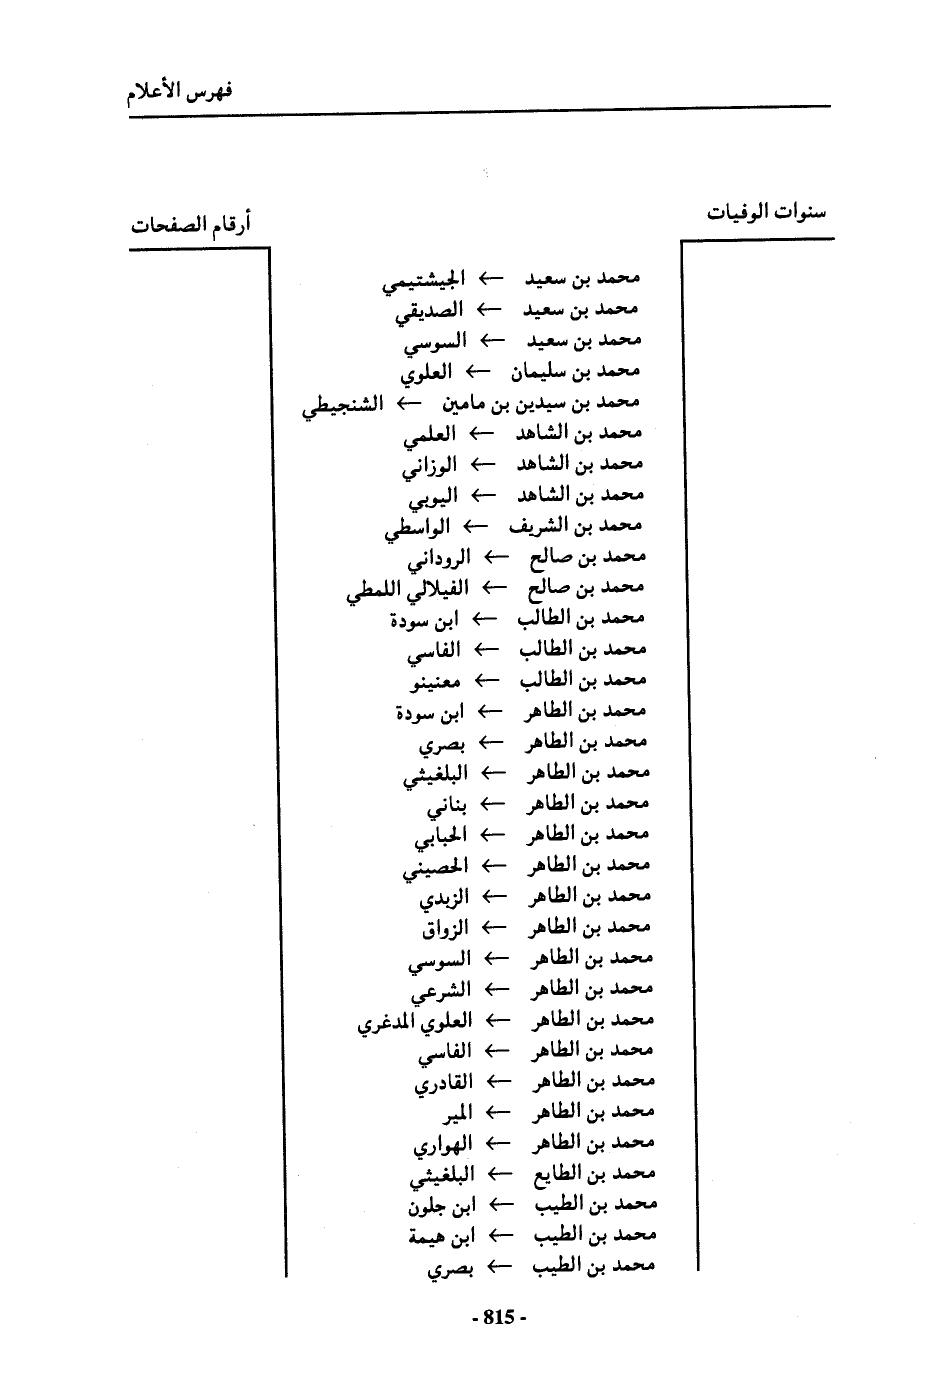 فهرس الأعلام
سنوات الوفيات
أرقام الصفحات
محمد بن سعيد ← الجيشتيمي
محمد بن سعيد ← الصديقي
محمد بن سعيد ← السوسي
محمد بن سليمان ← العلوي
محمد بن سيدين بن مامين ← الشنجيطي
محمد بن الشاهد ← العلمي
محمد بن الشاهد ← الوزاني
محمد بن الشاهد ← اليوبي
محمد بن الشريف ← الواسطي
محمد بن صالح ← الروداني
محمد بن صالح ← الفيلالي اللمطي
محمد بن الطالب ← ابن سودة
محمد بن الطالب ← الفاسي
محمد بن الطالب ← معنينو
محمد بن الطاهر ← ابن سودة
محمد بن الطاهر ← بصري
محمد بن الطاهر ← البلغيثي
محمد بن الطاهر ← بناني
محمد بن الطاهر ← الحبابي
محمد بن الطاهر ← الحصيني
محمد بن الطاهر ← الزبدي
محمد بن الطاهر ← الزواق
محمد بن الطاهر ← السوسي
محمد بن الطاهر ← الشرعي
محمد بن الطاهر ← العلوي المدغري
محمد بن الطاهر ← الفاسي
محمد بن الطاهر ← القادري
محمد بن الطاهر ← المير
محمد بن الطاهر ← الهواري
محمد بن الطايع ← البلغيثي
محمد بن الطيب ← ابن جلون
محمد بن الطيب ← ابن هيمة
محمد بن الطيب ← بصري
- 815 -